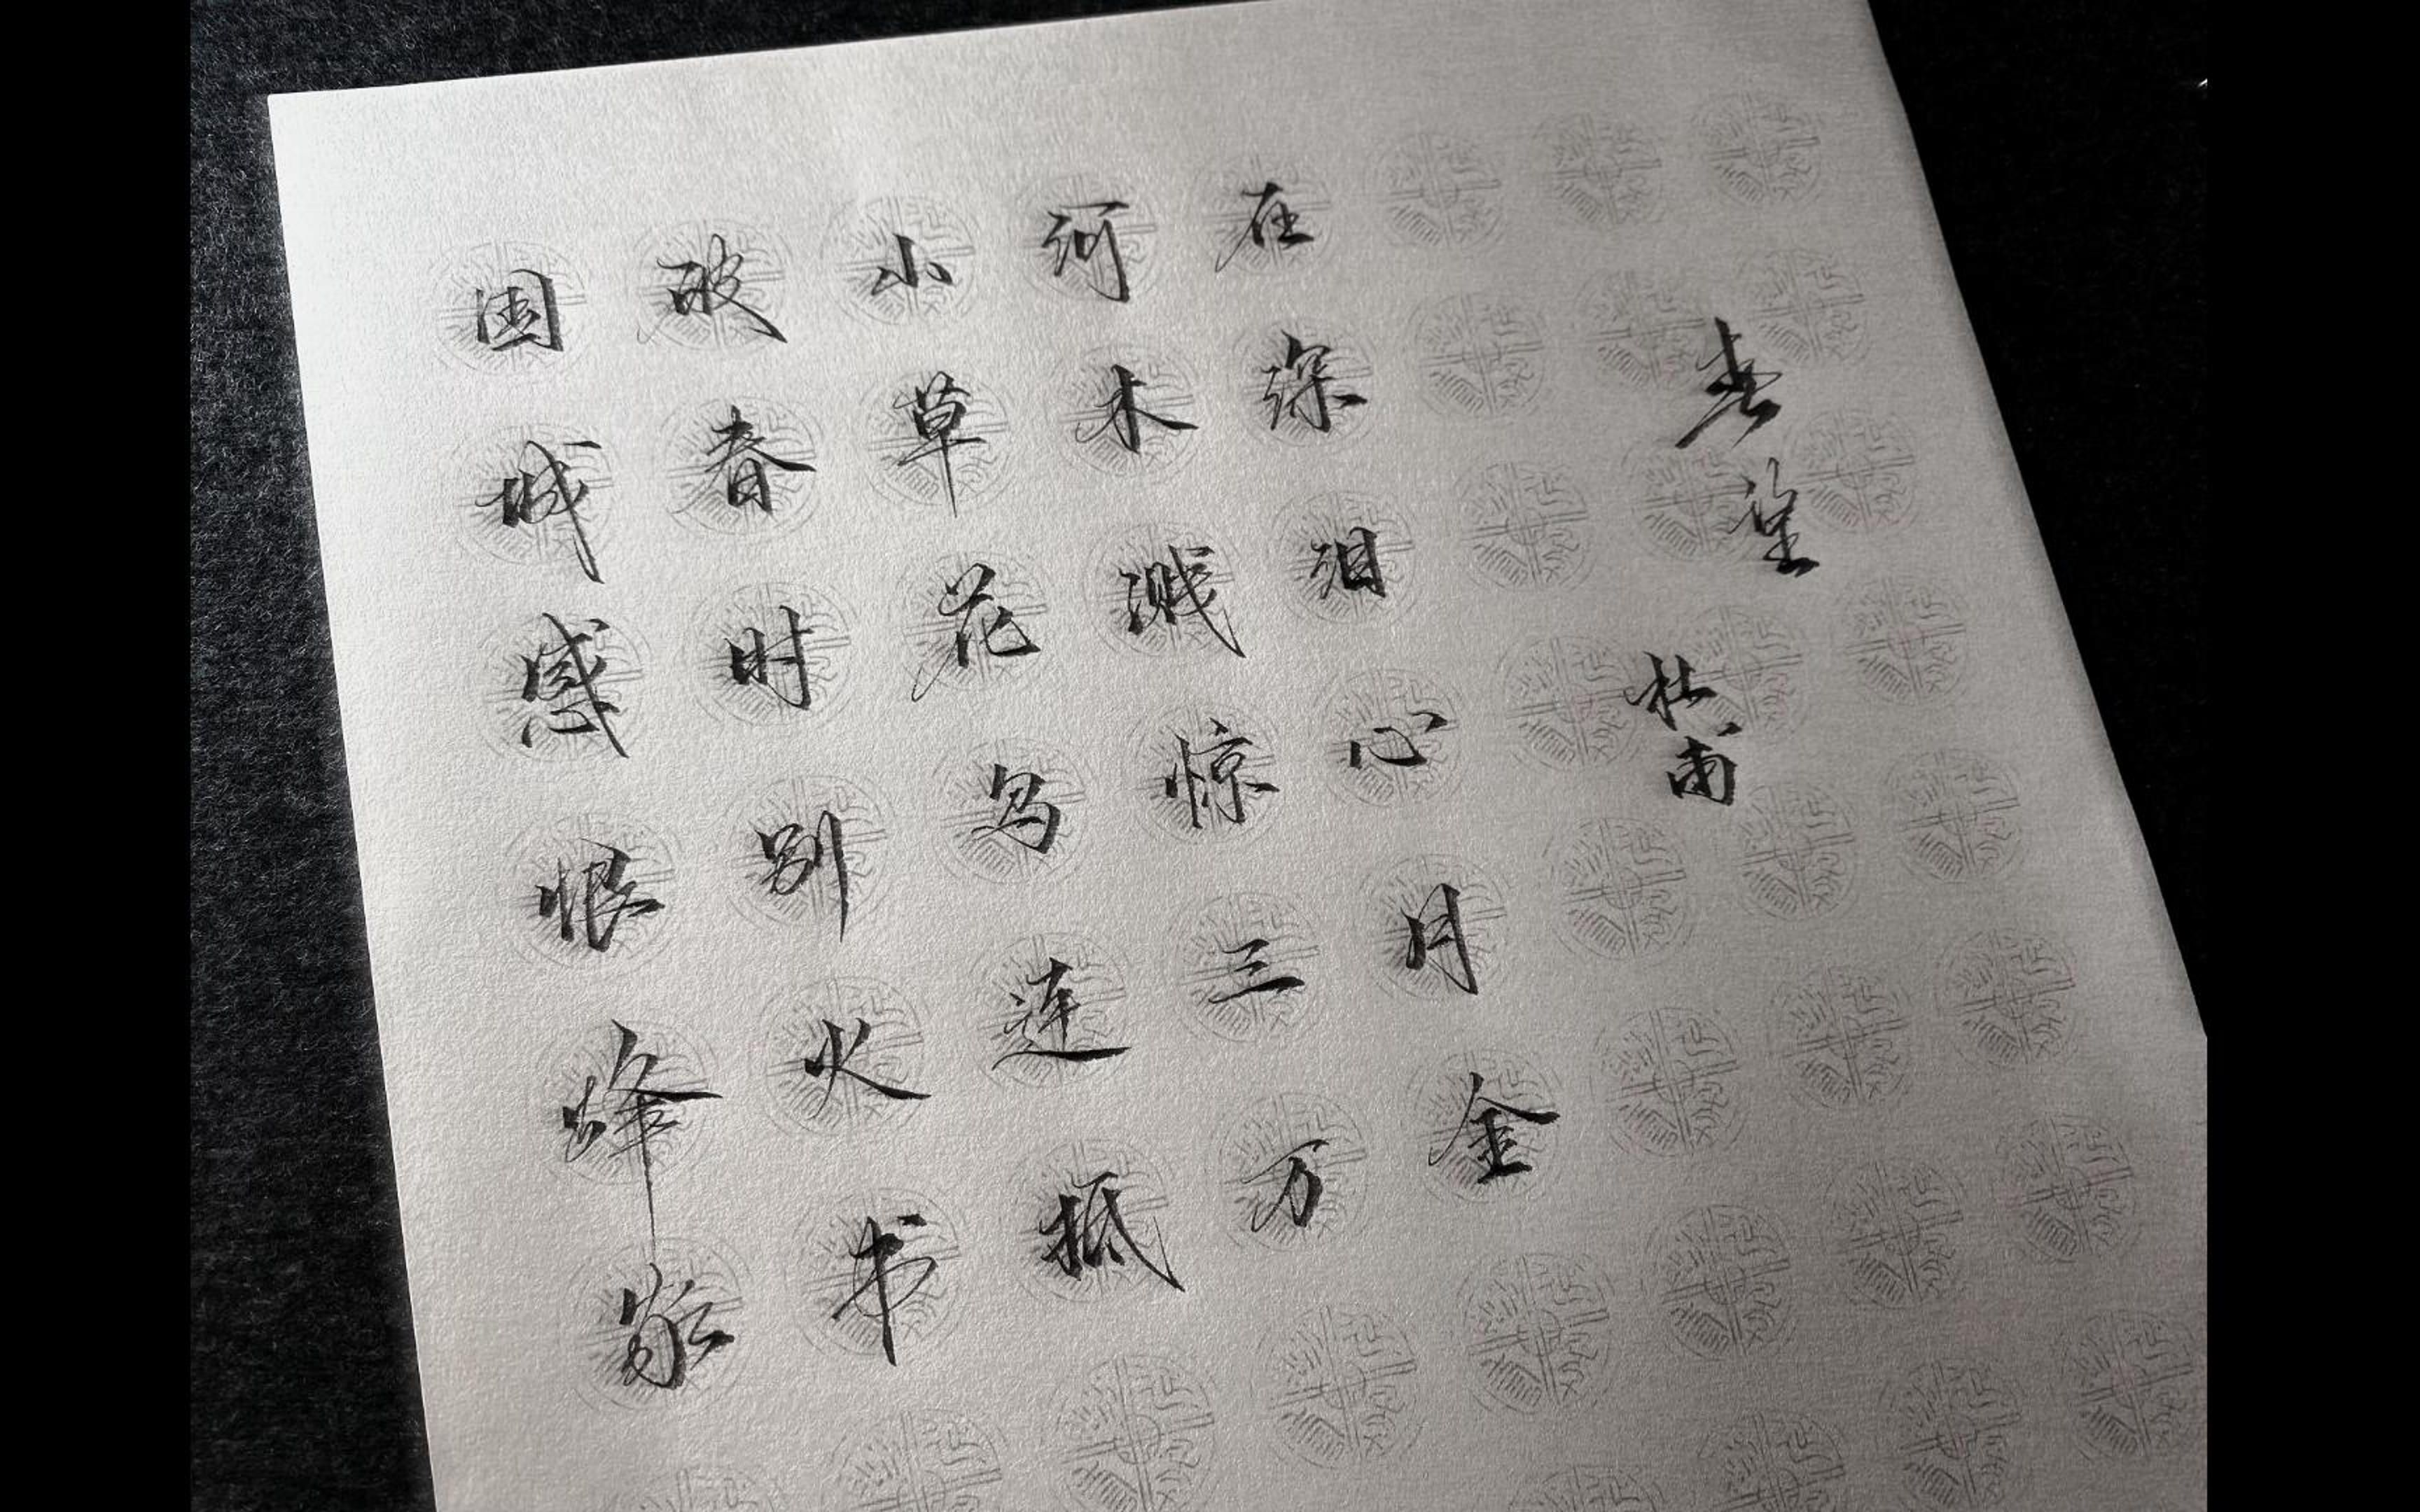 国破山河在
城春草木深
感时花溅泪
恨别鸟惊心
烽火连三月
家书抵万金
春望
杜甫